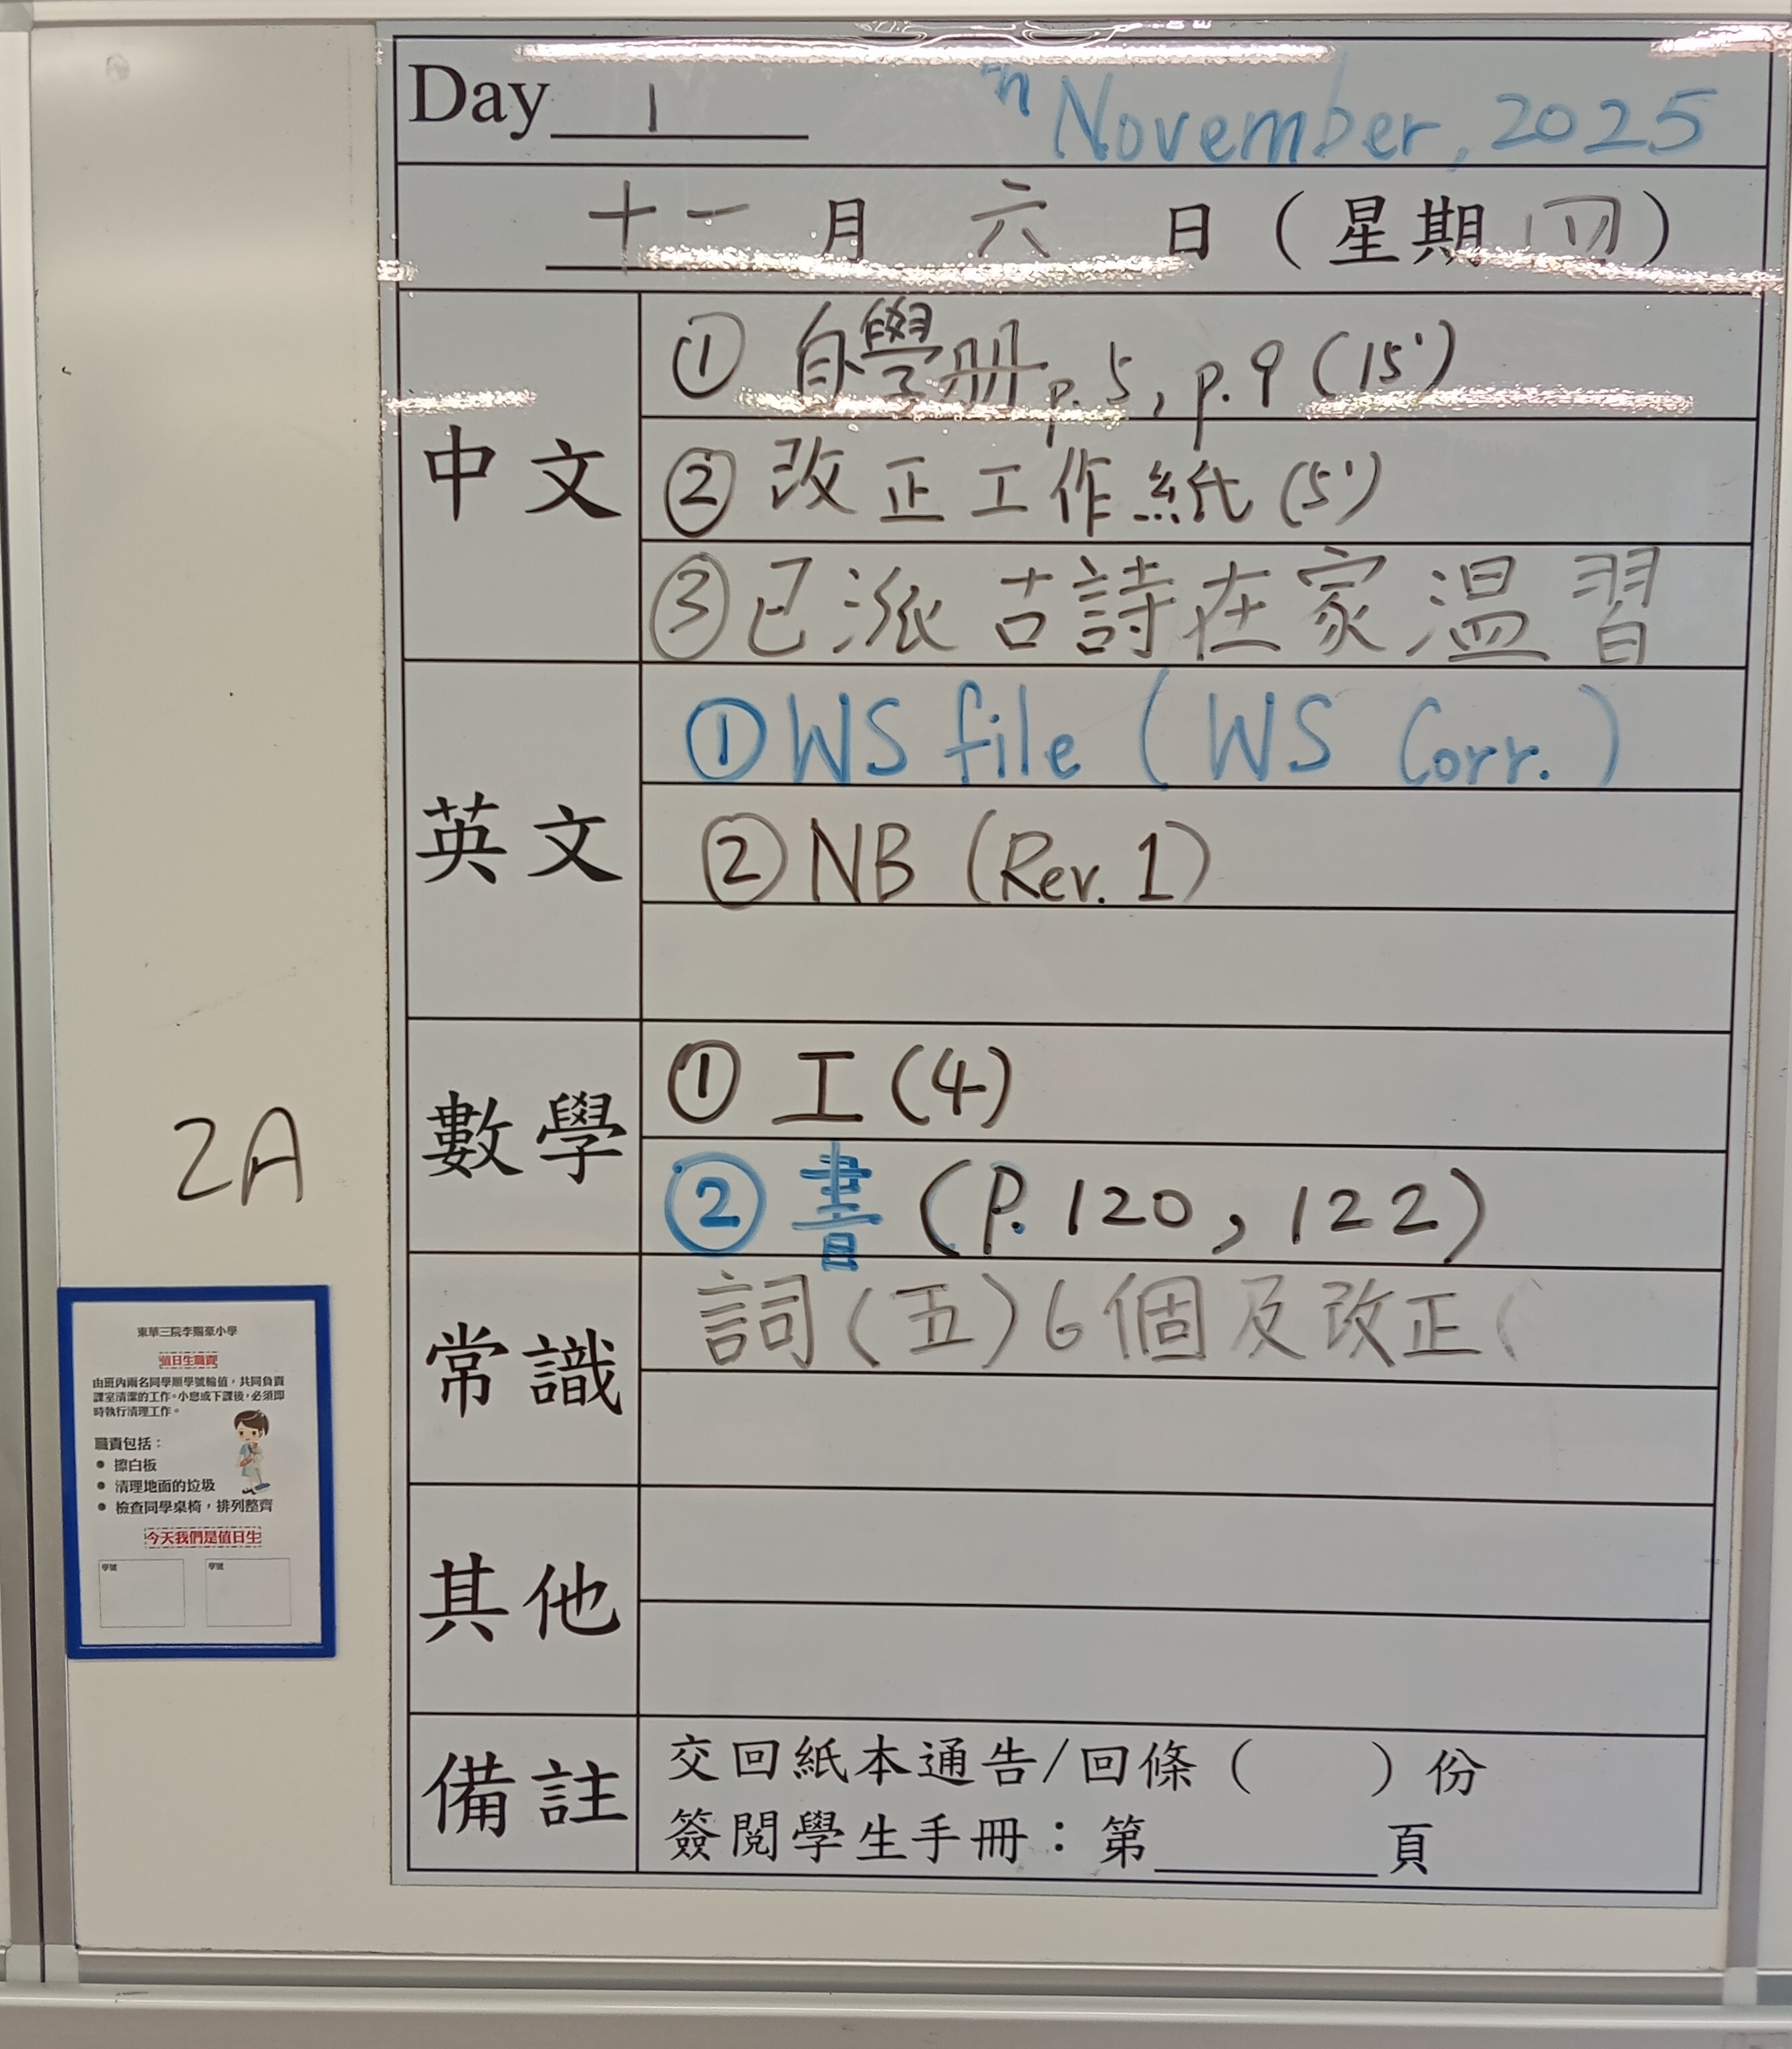 Day 1 th November, 2025
十一月 六 日（星期四）
中文
① 自學册 p.5, p.9 (15')
② 改正工作紙 (5')
③ 已派古詩在家溫習
英文
① WS file ( WS Corr. )
② NB (Rev. 1)
數學
① 工(4)
② 書 (P. 120, 122)
常識
詞(五) 6個及改正(
其他
備註
交回紙本通告/回條（ ）份
簽閱學生手冊：第 頁
2A
東華三院李賜豪小學
值日生職責
由班內兩名同學順學號輪值，共同負責
課室清潔的工作。小息或下課後，必須即
時執行清理工作。
職責包括：
● 擦白板
● 清理地面的垃圾
● 檢查同學桌椅，排列整齊
今天我們是值日生
學號 學號